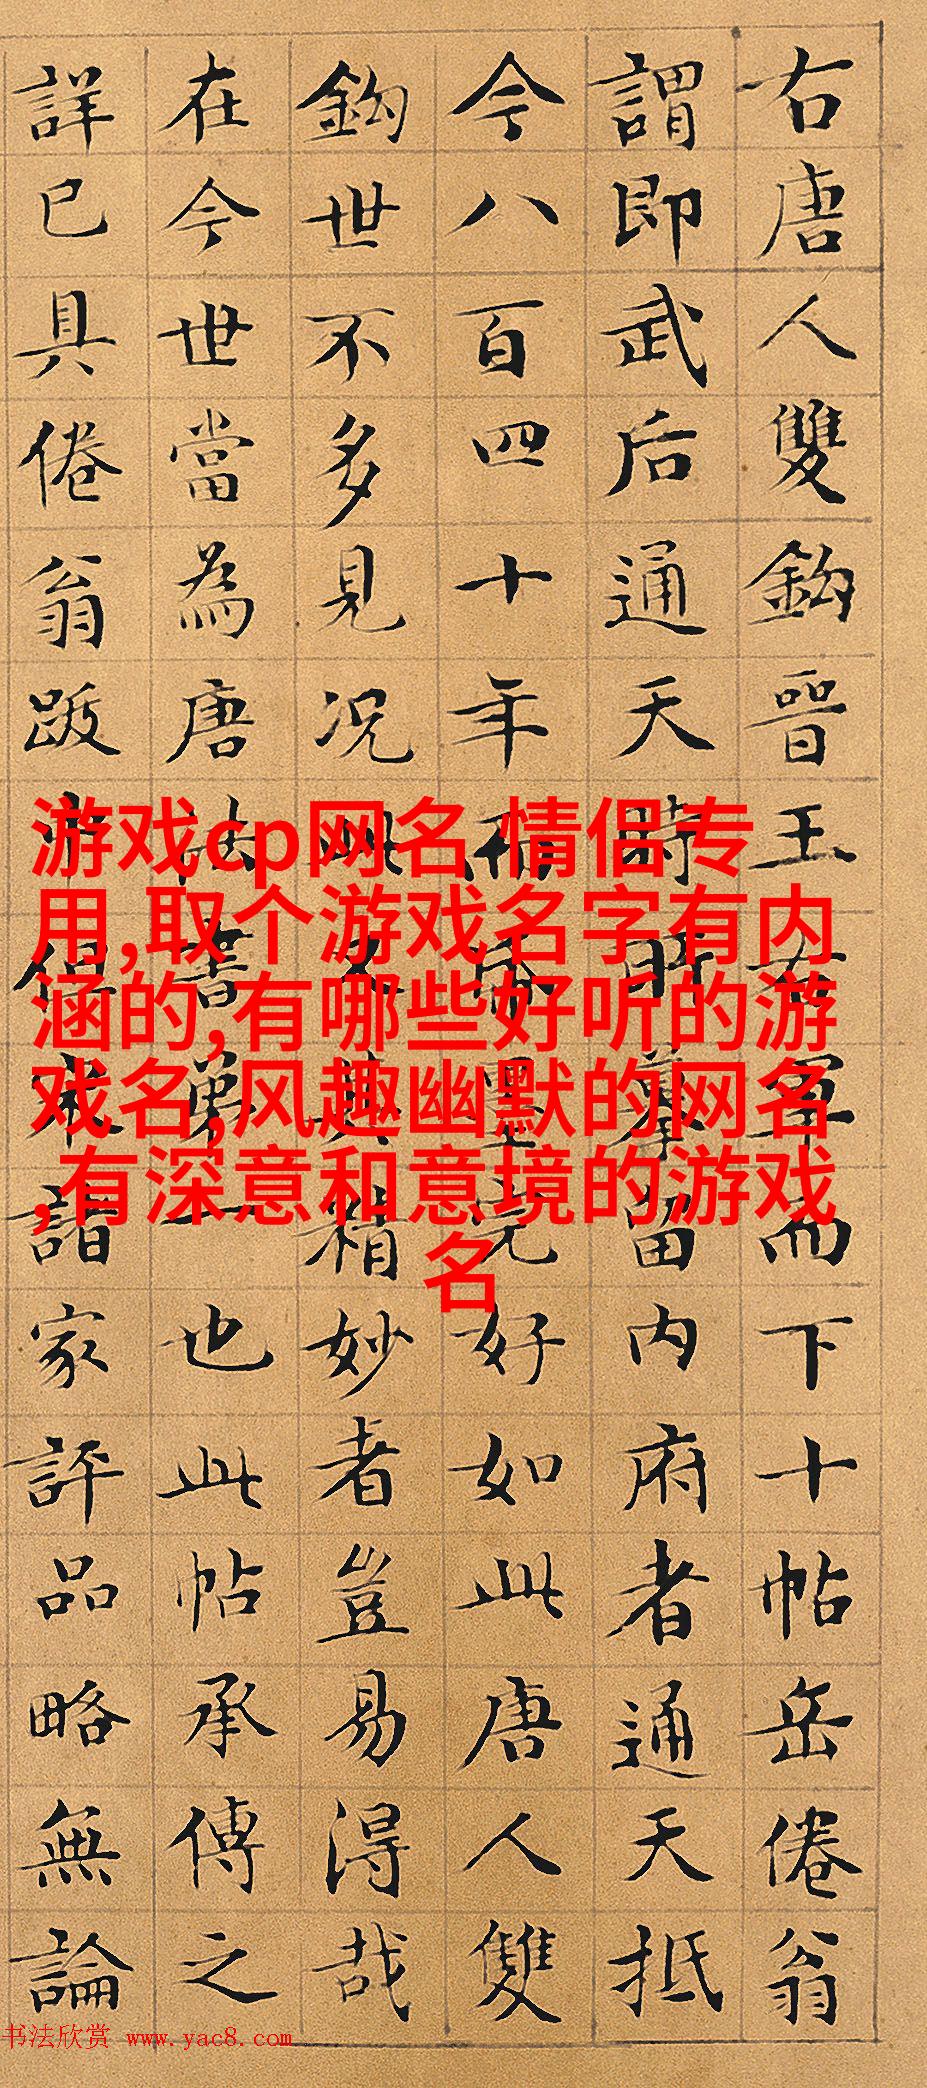 右唐人雙鈎晉王右軍而下十帖岳倦翁
謂即武后通天時所摹留内府者通天抵
今八百四十年而帋墨完好如此唐人雙
鈎世不多見况此又其精妙者豈易得哉
在今世當為唐法書第一也此帖承傳之
詳已具倦翁跋中但諸家評品略無論
游戏cp网名 情侣专
用,取个游戏名字有内
涵的,有哪些好听的游
戏名,风趣幽默的网名
,有深意和意境的游戏
名
书法欣赏 www.yac8.com